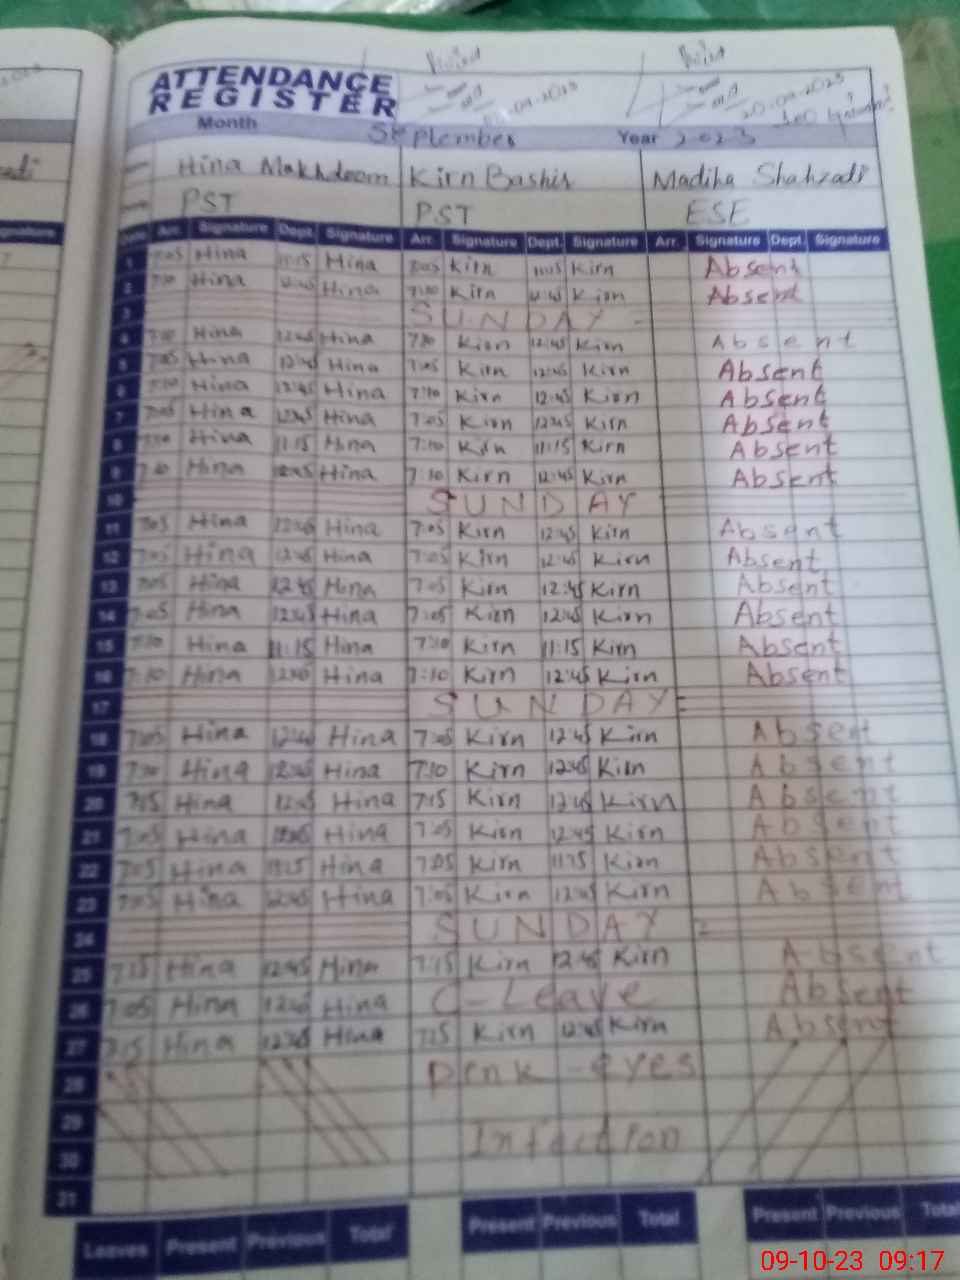 Visited
Visited
09-2023
20-09-2023
ATTENDANCE
REGISTER
Month September Year 2023
Hina Makhdoom Kirn Bashir Madiha Shahzadi
PST PST ESE
Date Arr. Signature Dept. Signature Arr. Signature Dept. Signature Arr. Signature Dept. Signature
1 7:05 Hina 11:15 Hina 7:05 Kirn 11:15 Kirn Absent
2 7:10 Hina 12:45 Hina 7:10 Kirn 12:45 Kirn Absent
3 SUNDAY
4 7:10 Hina 12:45 Hina 7:10 Kirn 12:45 Kirn Absent
5 7:05 Hina 12:45 Hina 7:05 Kirn 12:45 Kirn Absent
6 7:10 Hina 12:45 Hina 7:10 Kirn 12:45 Kirn Absent
7 7:05 Hina 12:45 Hina 7:05 Kirn 12:45 Kirn Absent
8 7:10 Hina 11:15 Hina 7:10 Kirn 11:15 Kirn Absent
9 7:10 Hina 12:45 Hina 7:10 Kirn 12:45 Kirn Absent
10 SUNDAY
11 7:05 Hina 12:45 Hina 7:05 Kirn 12:45 Kirn Absent
12 7:05 Hina 12:45 Hina 7:05 Kirn 12:45 Kirn Absent
13 7:05 Hina 12:45 Hina 7:05 Kirn 12:45 Kirn Absent
14 7:05 Hina 12:45 Hina 7:05 Kirn 12:45 Kirn Absent
15 7:10 Hina 11:15 Hina 7:10 Kirn 11:15 Kirn Absent
16 7:10 Hina 12:45 Hina 7:10 Kirn 12:45 Kirn Absent
17 SUNDAY
18 7:05 Hina 12:45 Hina 7:05 Kirn 12:45 Kirn Absent
19 7:10 Hina 12:45 Hina 7:10 Kirn 12:45 Kirn Absent
20 7:15 Hina 12:45 Hina 7:15 Kirn 12:45 Kirn Absent
21 7:05 Hina 12:45 Hina 7:05 Kirn 12:45 Kirn Absent
22 7:05 Hina 11:15 Hina 7:05 Kirn 11:15 Kirn Absent
23 7:05 Hina 12:45 Hina 7:05 Kirn 12:45 Kirn Absent
24 SUNDAY
25 7:15 Hina 12:45 Hina 7:15 Kirn 12:45 Kirn Absent
26 7:05 Hina 12:45 Hina C-Leave Absent
27 7:15 Hina 12:45 Hina 7:15 Kirn 12:45 Kirn Absent
28 Penk-eyes
29 Infection
30
31
Leaves Present Previous Total Present Previous Total Present Previous Total
09-10-23 09:17